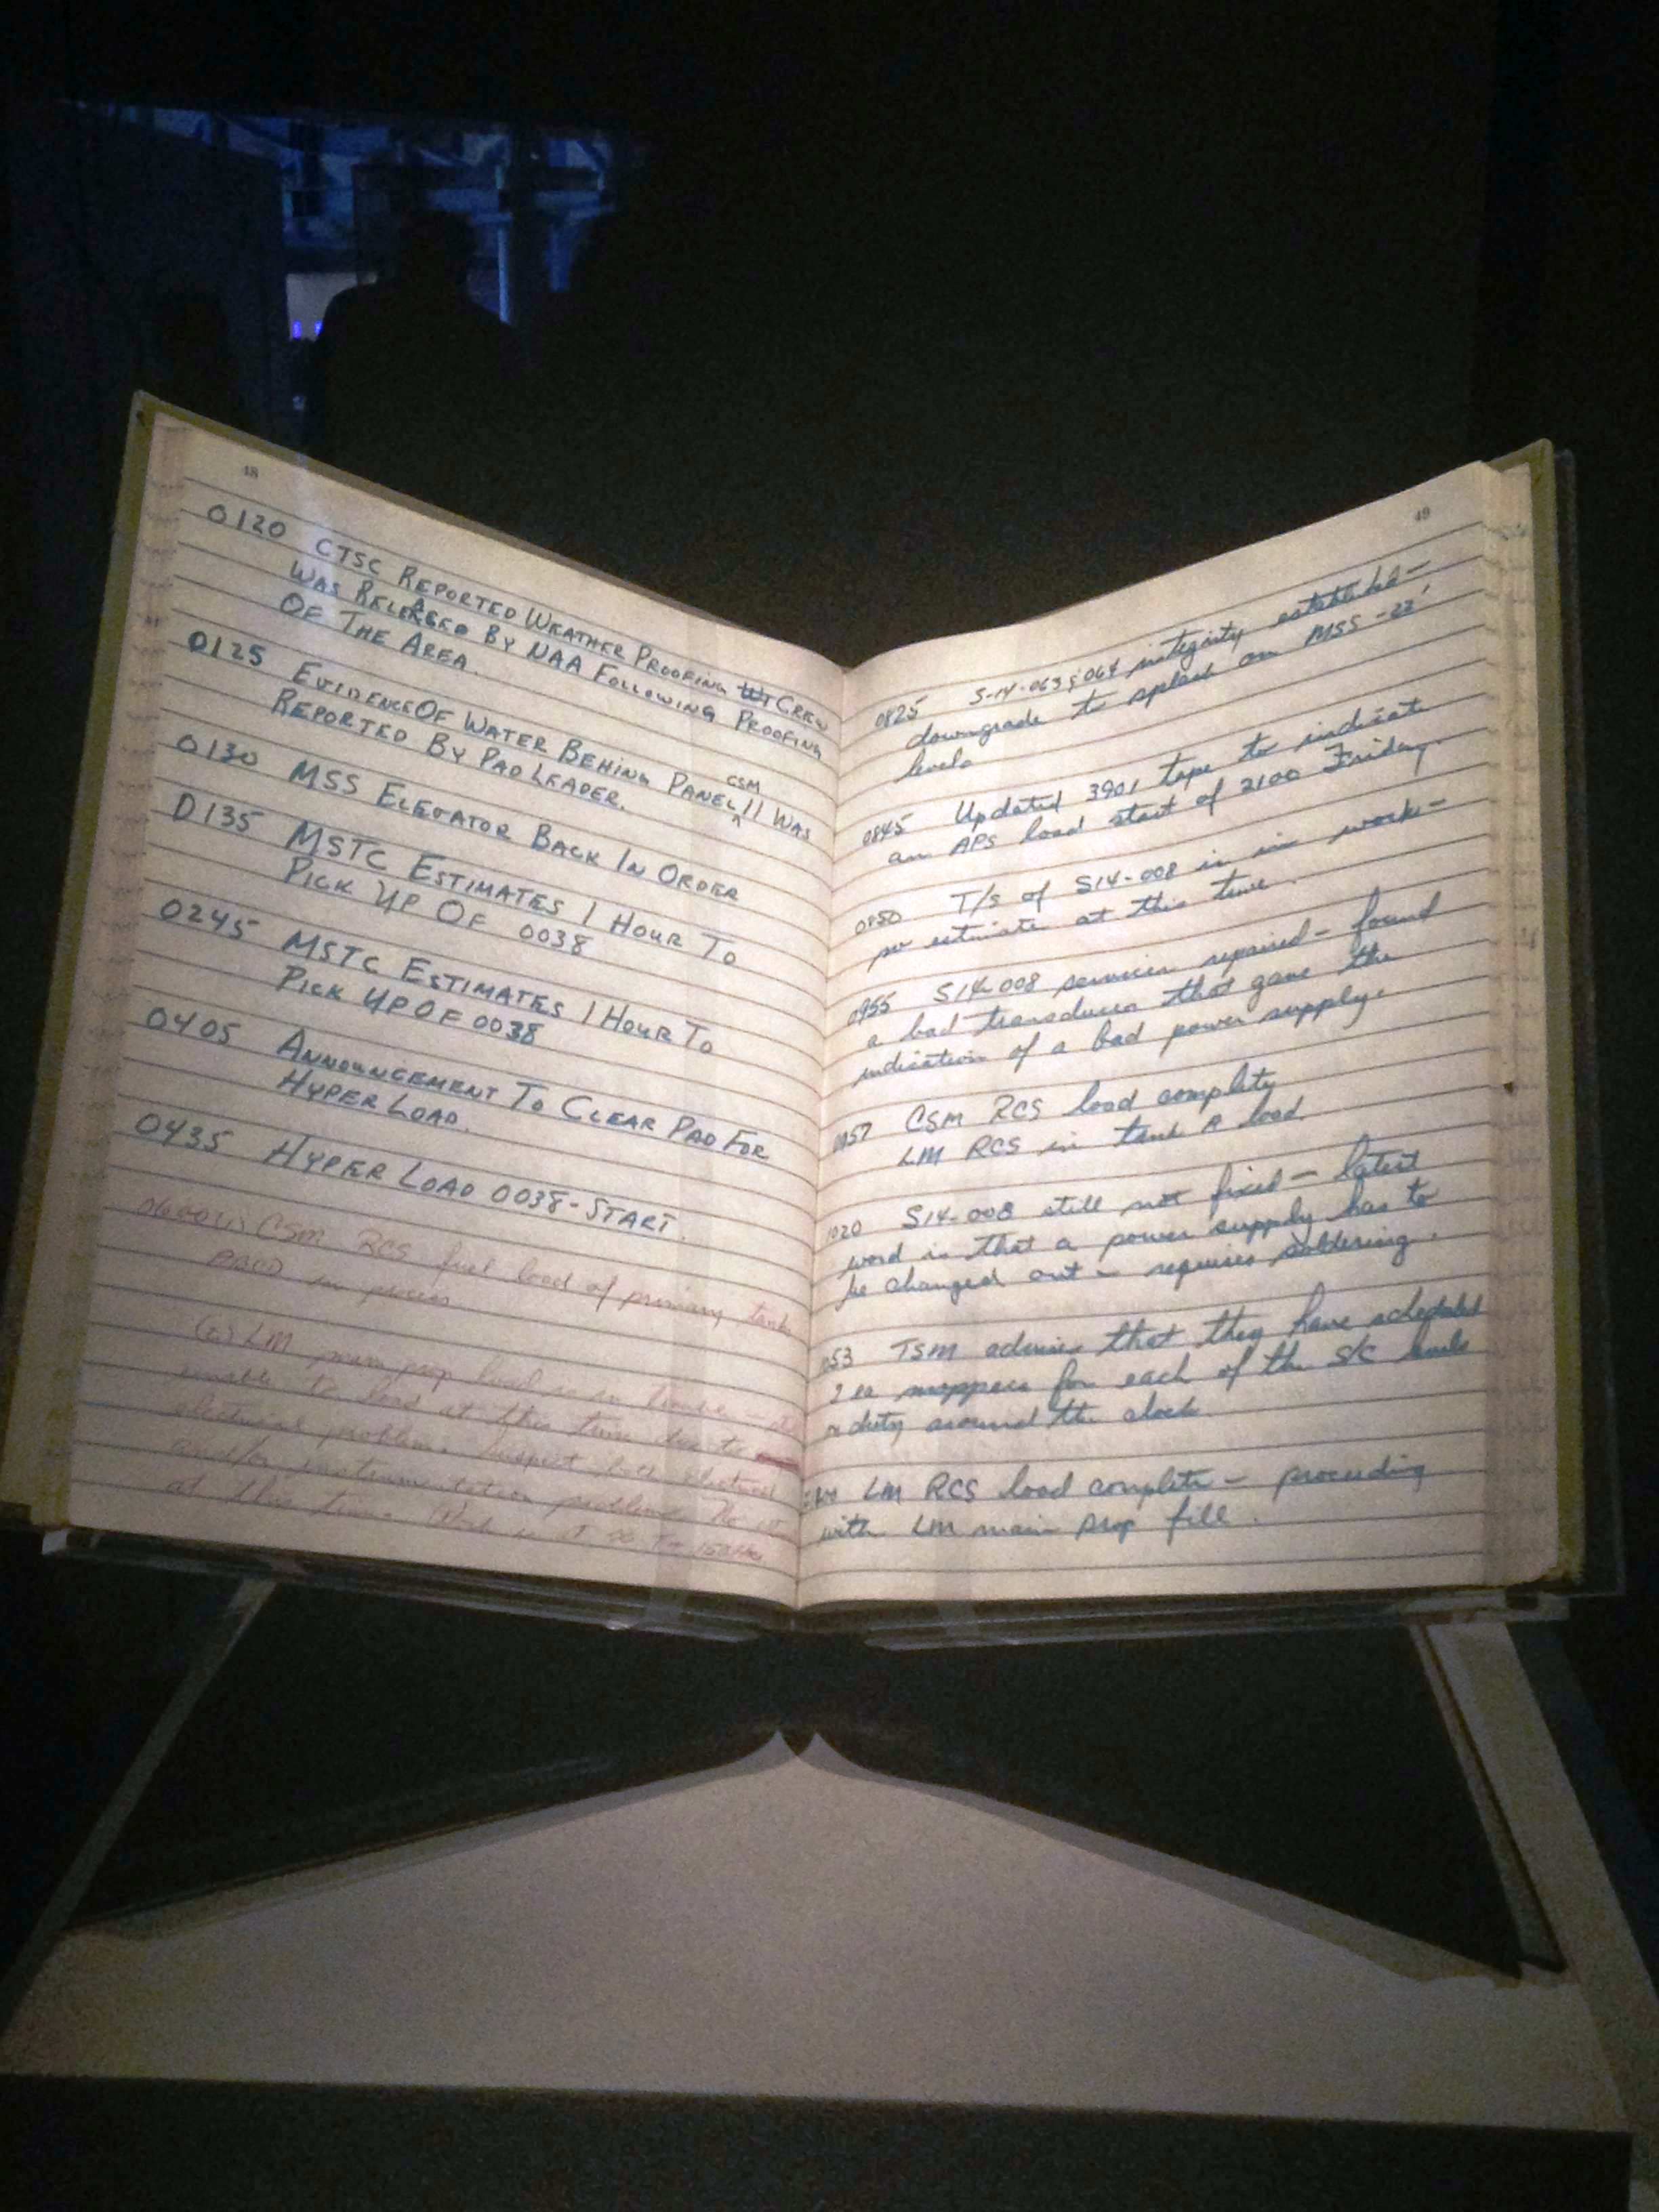 48
0120 CTSC REPORTED WEATHER PROOFING CREW
WAS RELEASED BY NAA FOLLOWING PROOFING
OF THE AREA.
0125 EVIDENCE OF WATER BEHIND PANEL CSM 11 WAS
REPORTED BY PAD LEADER.
0130 MSS ELEVATOR BACK IN ORDER
0135 MSTC ESTIMATES 1 HOUR TO
PICK UP OF 0038
0245 MSTC ESTIMATES 1 HOUR TO
PICK UP OF 0038
0405 ANNOUNCEMENT TO CLEAR PAD FOR
HYPER LOAD.
0435 HYPER LOAD 0038-START.
0600 (1) CSM RCS fuel load of primary tank
in
(2) LM prop load is in
unable to load at this time due to
electrical problem. Suspect both electrical
and/or instrumentation problem. No
at this time.
49
0825 S-14-063 & 064 integrity establ-
downgrade to splash on MSS -22'
levels
0845 Updated 3901 tape to indicate
an APS load start of 2100 Friday.
0850 T/S of S14-008 is in work-
no estimate at this time.
0955 S14-008 repaired - found
a bad transducer that gave the
indication of a bad power supply.
0957 CSM RCS load complete
LM RCS in tank A load.
1020 S14-008 still not fixed - latest
word is that a power supply has to
be changed out - requires soldering.
053 TSM advises that they have scheduled
2 ea moppers for each of the S/C levels
duty around the clock
LM RCS load complete - proceeding
with LM main prop fill.